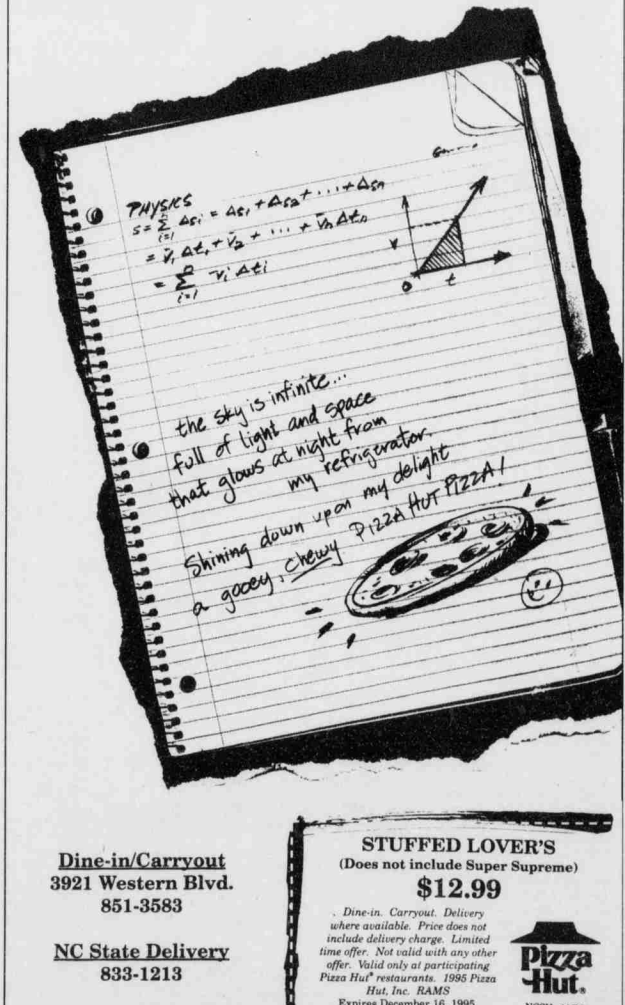 PHYSICS
s = Σ Δsi = Δs1 + Δs2 + ... + Δsn
i=1
= v̄1 Δt1 + v̄2 + ... + v̄n Δtn
= Σ v̄i Δti
i=1
v
0
t
the sky is infinite...
full of light and space
that glows at night from
my refrigerator.
Shining down upon my delight
a gooey, chewy PIZZA HUT PIZZA!
Dine-in/Carryout
3921 Western Blvd.
851-3583
NC State Delivery
833-1213
STUFFED LOVER'S
(Does not include Super Supreme)
$12.99
. Dine-in. Carryout. Delivery
where available. Price does not
include delivery charge. Limited
time offer. Not valid with any other
offer. Valid only at participating
Pizza Hut® restaurants. 1995 Pizza
Hut, Inc. RAMS
Expires December 16, 1995
Pizza
Hut®